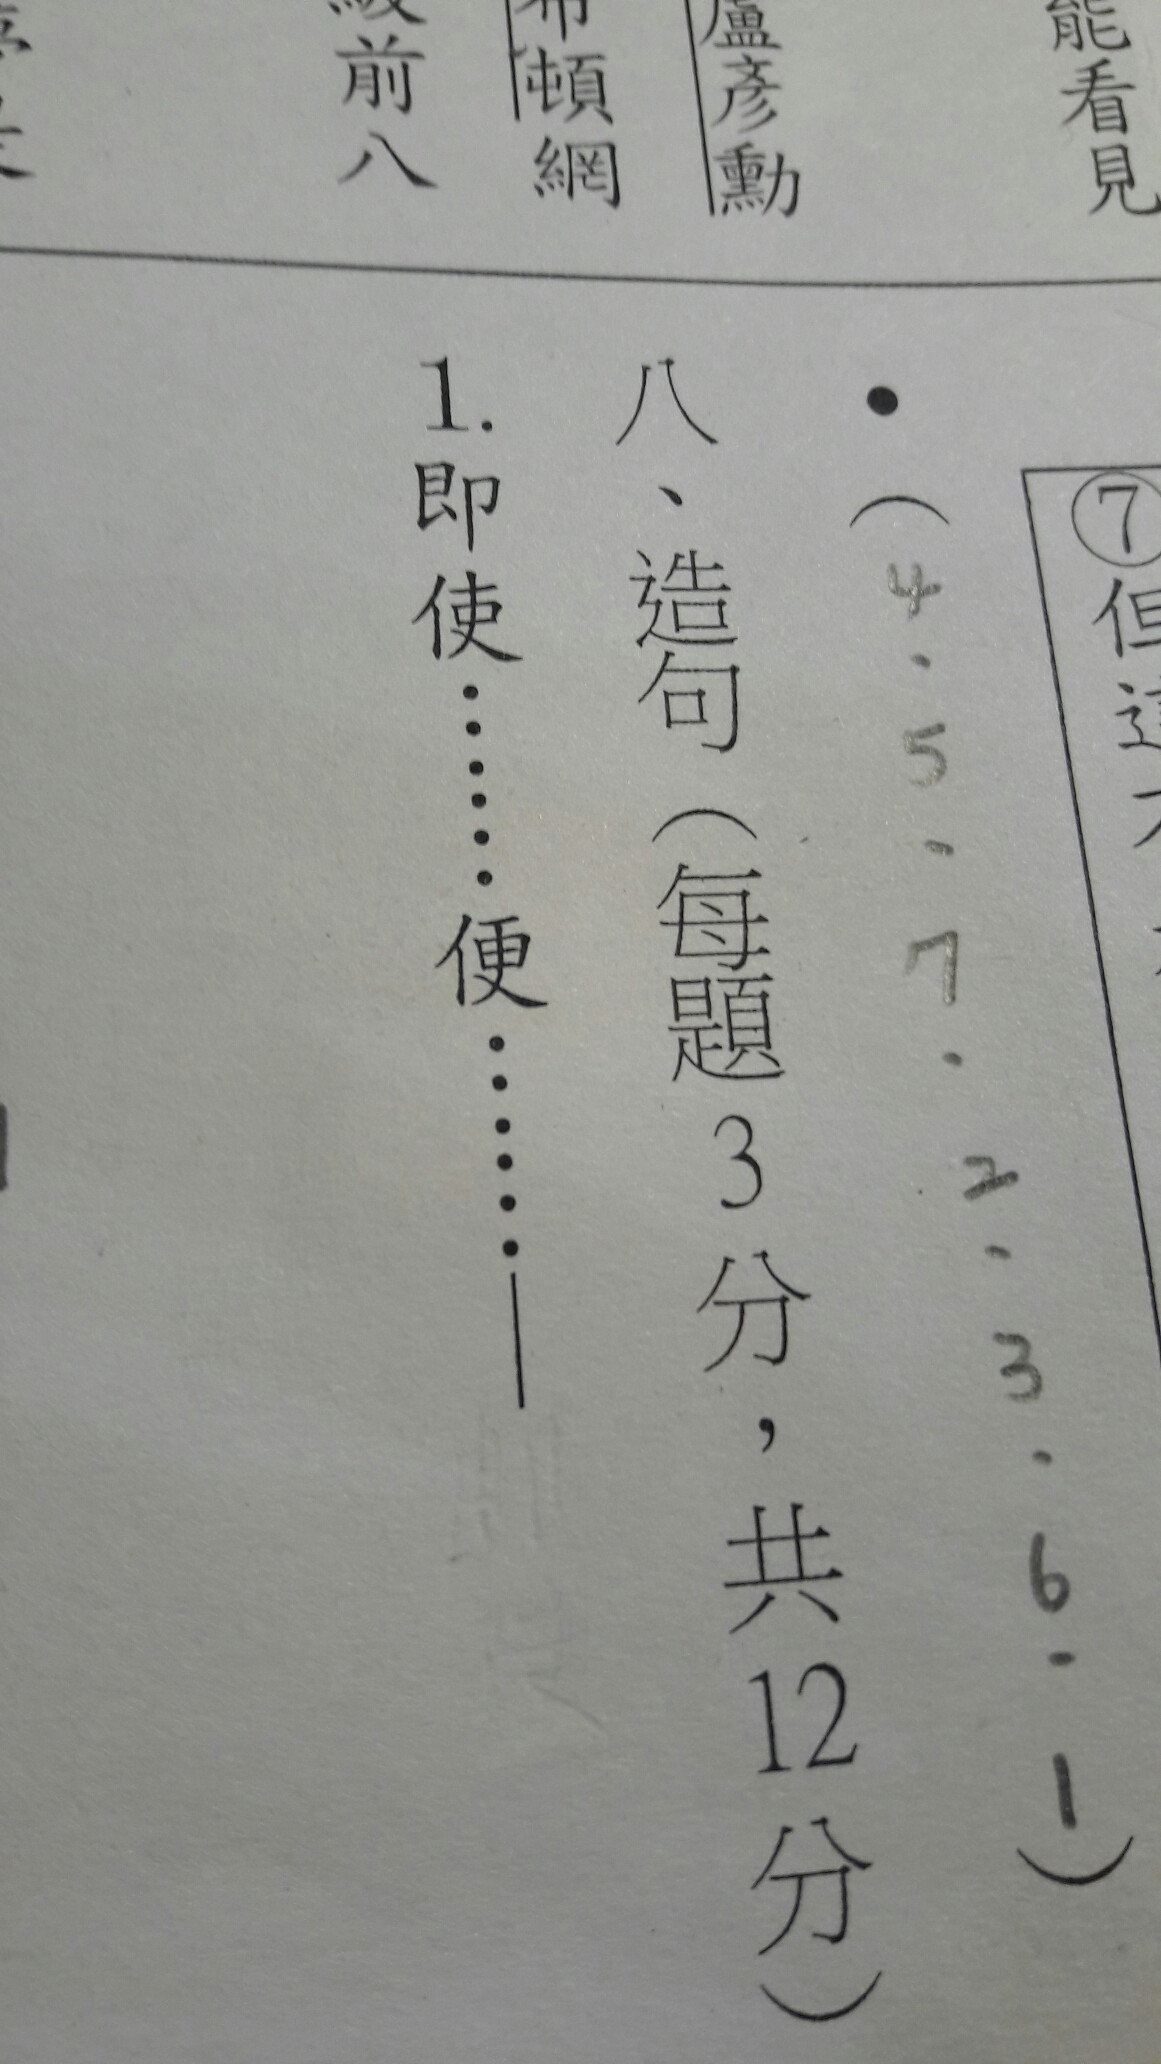 能看見
盧彥勳
希頓網
級前八
⑦但這
•（4．5．7．2．3．6．1）
八、造句（每題3分，共12分）
1.即使……便……—